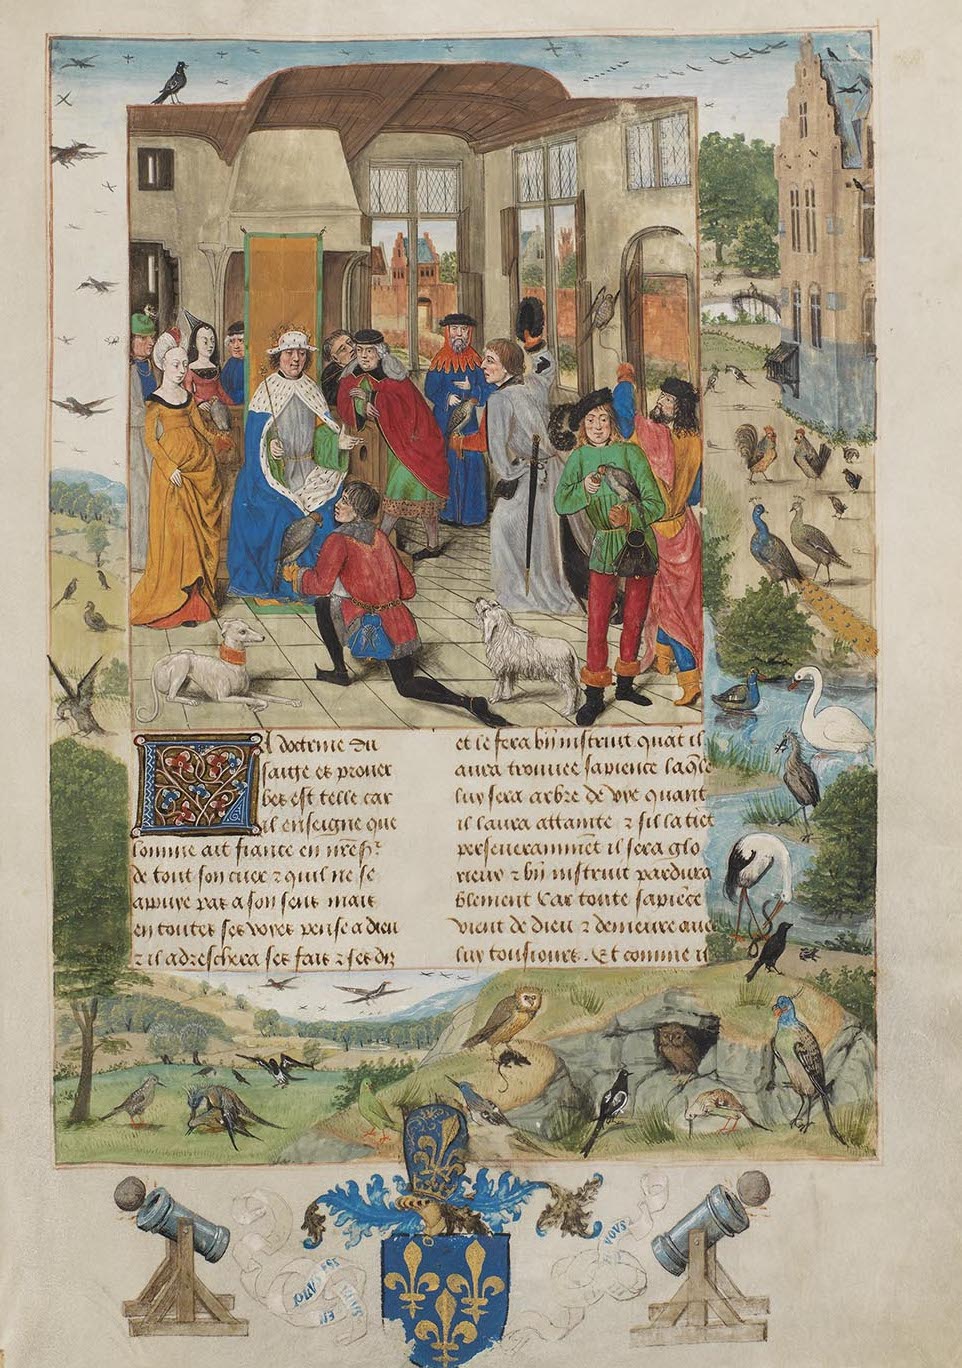 A doctrine du
saige es prouer
bes est telle car
il enseigne que
lomme ait fiance en nr̄e sr̄
de tout son cuer ⁊ quil ne se
apuye pas a son sens mais
en toutes ses voyes pense a dieu
⁊ il adreschera ses fais ⁊ ses dis
et le fera bn̄ instruit quāt il
aura trouuee sapience laq̄le
luy sera arbre de vye quant
il laura attainte ⁊ sil la tiēt
perseuerammēt il sera glo
rieux ⁊ bn̄ instruit pardura
blement Car toute sapiēce
vient de dieu ⁊ demeure auec
luy tousiours. Et comme il
VOUS